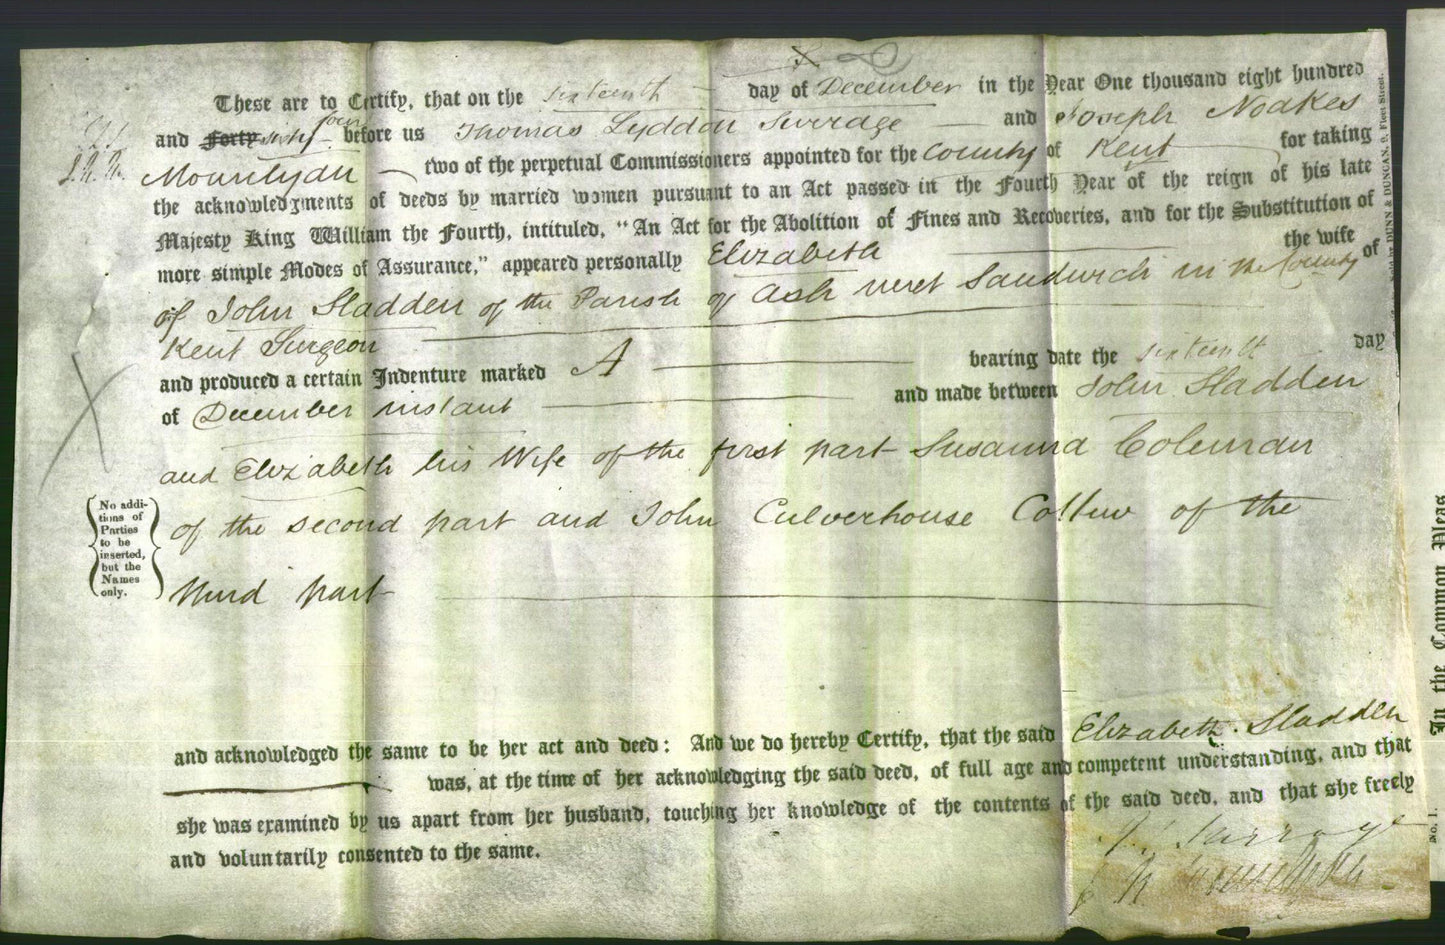 These are to Certify, that on the sixteenth day of December in the Year One thousand eight hundred
and Forty sixty four before us Thomas Lyddon Surrage and Joseph Noakes
Mourilyan two of the perpetual Commissioners appointed for the County of Kent for taking
the acknowledgments of deeds by married women pursuant to an Act passed in the Fourth Year of the reign of his late
Majesty King William the Fourth, intituled, "An Act for the Abolition of Fines and Recoveries, and for the Substitution of
more simple Modes of Assurance," appeared personally Elizabeth the wife
of John Sladden of the Parish of Ash next Sandwich in the County of
Kent Surgeon
and produced a certain Indenture marked A bearing date the sixteenth day
of December instant and made between John Sladden
and Elizabeth his Wife of the first part Susanna Coleman
of the second part and John Culverhouse of the
third part
No addi-
tions of
Parties
to be
inserted,
but the
Names
only.
and acknowledged the same to be her act and deed: And we do hereby Certify, that the said Elizabeth Sladden
was, at the time of her acknowledging the said deed, of full age and competent understanding, and that
she was examined by us apart from her husband, touching her knowledge of the contents of the said deed, and that she freely
and voluntarily consented to the same.
DUNN & DUNCAN, 9, Fleet Street.
In the Common Pleas
No. 1.